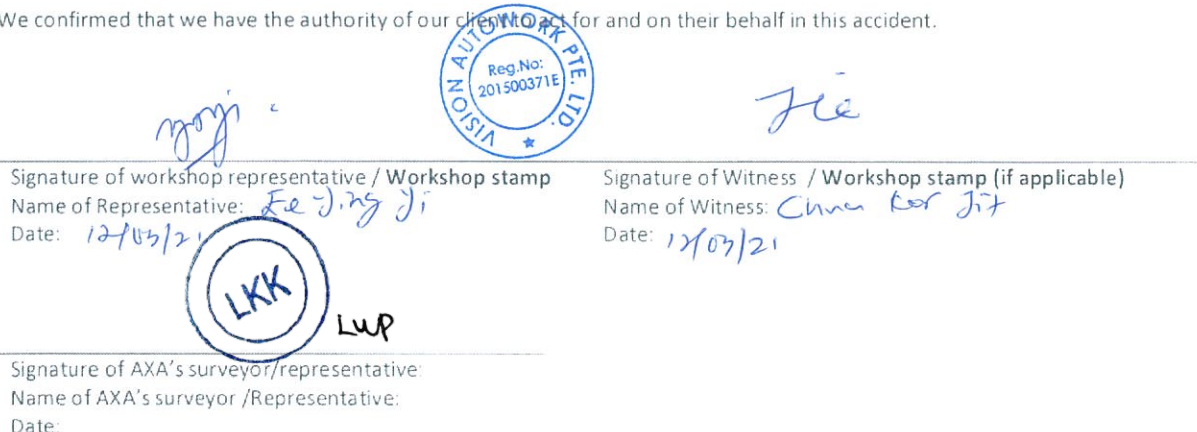 We confirmed that we have the authority of our client to act for and on their behalf in this accident.
VISION AUTOWORK PTE. LTD.
Reg.No:
201500371E
Signature of workshop representative / Workshop stamp
Name of Representative: Ee Jing Yi
Date: 12/03/21
Signature of Witness / Workshop stamp (if applicable)
Name of Witness: Kor Jit
Date: 12/03/21
LKK
LWP
Signature of AXA's surveyor/representative:
Name of AXA's surveyor /Representative:
Date: